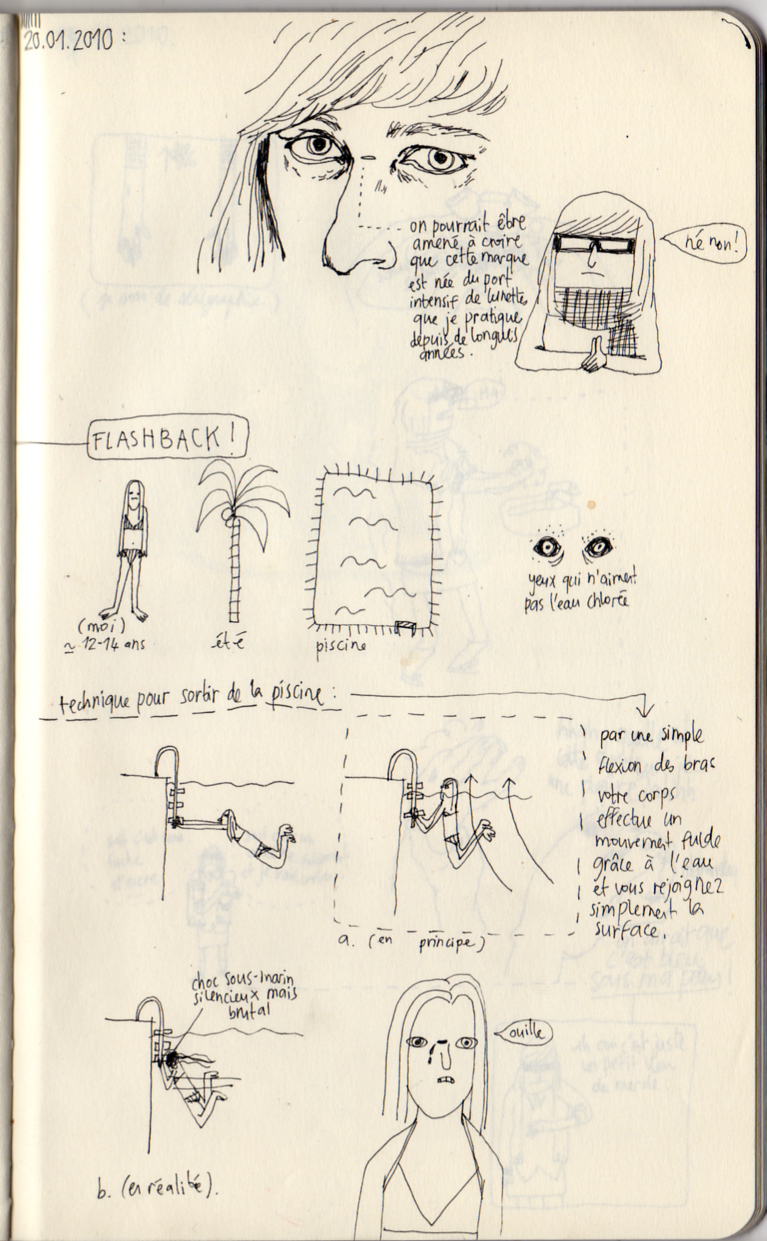 20.01.2010 :
on pourrait être
amené à croire
que cette marque
est née du port
intensif de lunette
que je pratique
depuis de longues
années.
hé non!
FLASHBACK !
(moi)
≈ 12-14 ans
été
piscine
yeux qui n'aiment
pas l'eau chlorée
technique pour sortir de la piscine :
par une simple
flexion des bras
votre corps
effectue un
mouvement fulde
grâce à l'eau
et vous rejoignez
simplement la
surface.
a. (en principe)
choc sous-marin
silencieux mais
brutal
ouille
b. (en réalité).